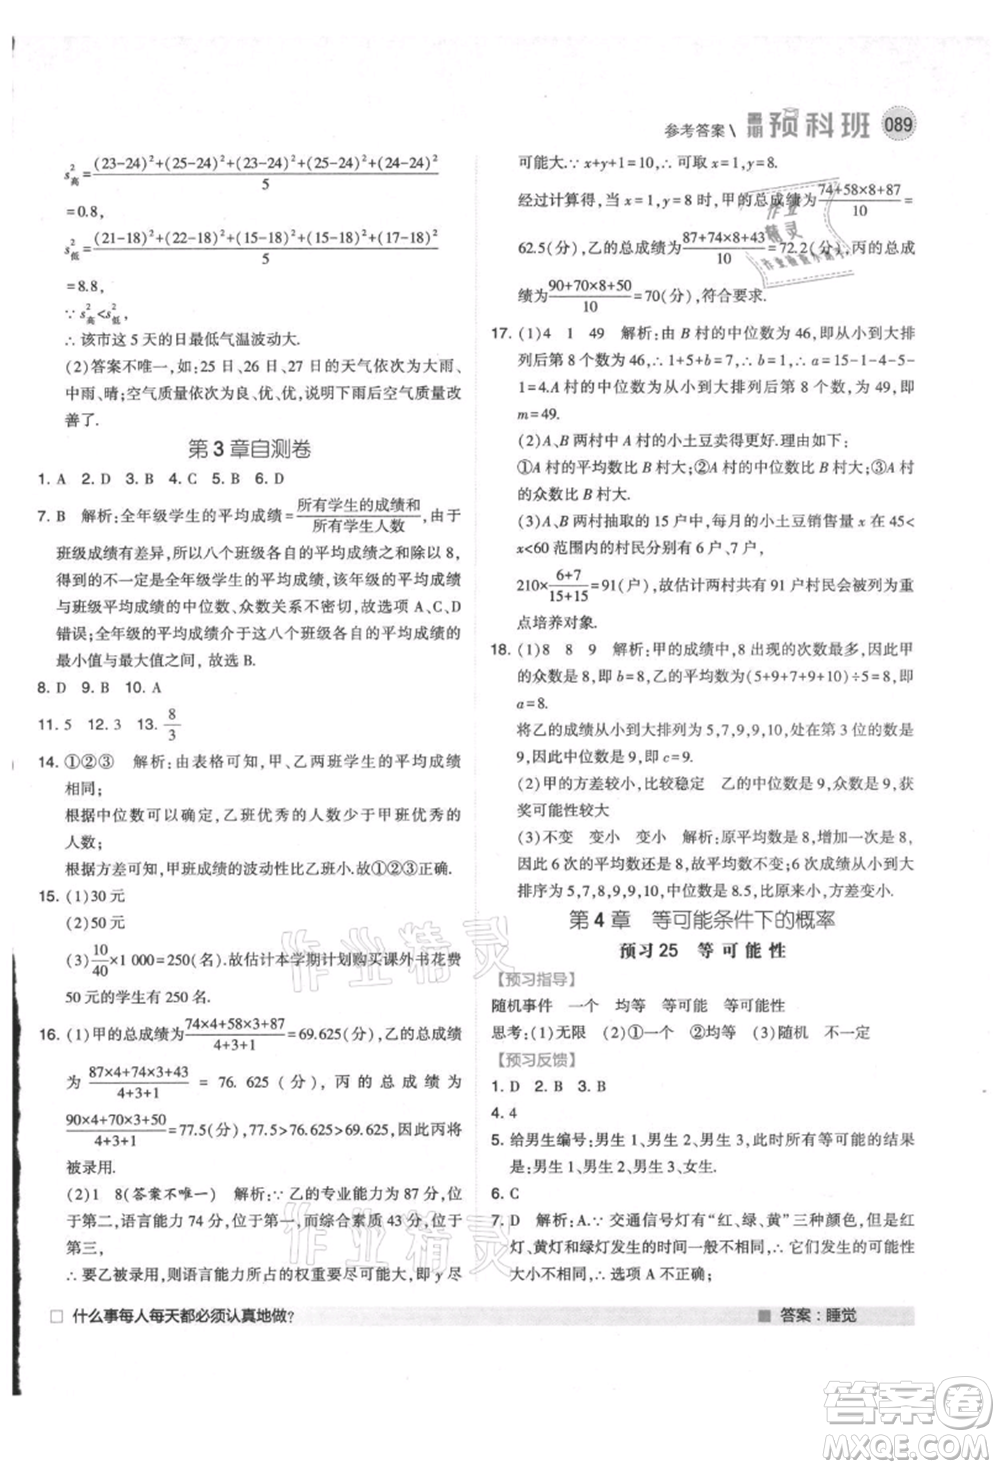 参考答案\ 暑期预科班 089
s²高=[(23-24)²+(25-24)²+(23-24)²+(25-24)²+(24-24)²]/5
=0.8,
s²低=[(21-18)²+(22-18)²+(15-18)²+(15-18)²+(17-18)²]/5
=8.8,
∵ s²高<s²低,
∴ 该市这 5 天的日最低气温波动大.
(2)答案不唯一,如:25 日、26 日、27 日的天气依次为大雨、
中雨、晴;空气质量依次为良、优、优,说明下雨后空气质量改
善了.
第 3 章自测卷
1. A 2. D 3. B 4. C 5. B 6. D
7. B 解析:全年级学生的平均成绩=所有学生的成绩和/所有学生人数, 由于
班级成绩有差异,所以八个班级各自的平均成绩和除以 8,
得到的不一定是全年级学生的平均成绩,该年级平均成绩
与班级平均成绩的中位数、众数关系不密切,故选项 A、C、D
错误;全年级的平均成绩介于这八个班级各自的平均成绩的
最小值与最大值之间, 故选 B.
8. D 9. B 10. A
11. 5 12. 3 13. 8/3
14. ①②③ 解析:由表格可知,甲、乙两班学生的平均成绩
相同;
根据中位数可以确定,乙班优秀的人数少于甲班优秀的
人数;
根据方差可知,甲班成绩的波动性比乙班小.故①②③正确.
15. (1)30 元
(2)50 元
(3)10/40×1 000=250(名).故估计本学期计划购买课外书花费
50 元的学生有 250 名.
16. (1)甲的总成绩为(74×4+58×3+87)/(4+3+1)=69.625(分),乙的总成绩
为(87×4+74×3+43)/(4+3+1)=76.625(分),丙的总成绩为
(90×4+70×3+50)/(4+3+1)=77.5(分),77.5>76.625>69.625,因此丙将
被录用.
(2)1 8(答案不唯一) 解析:∵ 乙的专业能力为 87 分,位
于第二,语言能力 74 分,位于第一,而综合素质 43 分,位于
第三,
∴ 要乙被录用,则语言能力所占的权重要尽可能大,即 y 尽
可能大.∵ x+y+1=10,∴ 可取 x=1,y=8.
经过计算得,当 x=1,y=8 时,甲的总成绩为(74+58×8+87)/10=
62.5(分),乙的总成绩为(87+74×8+43)/10=72.2(分),丙的总成
绩为(90+70×8+50)/10=70(分),符合要求.
17. (1)4 1 49 解析:由 B 村的中位数为 46,即从小到大排
列后第 8 个数为 46,∴ 1+5+b=7,∴ b=1,∴ a=15-1-4-5-
1=4.A 村的中位数为从小到大排列后第 8 个数,为 49,即
m=49.
(2)A、B 两村中 A 村的小土豆卖得更好,理由如下:
①A 村的平均数比 B 村大;②A 村的中位数比 B 村大;③A 村
的众数比 B 村大.
(3)A、B 两村抽取的 15 户中,每月的小土豆销售量在 45<
x<60 范围内的村民分别有 6 户、7 户,
210×(6+7)/(15+15)=91(户),故估计两村共有 91 户村民会被列为重
点培养对象.
18. (1)8 8 9 解析:甲的成绩中,8 出现的次数最多,因此甲
的众数是 8,即 b=8.乙的平均数为(5+9+7+9+10)÷5=8,即
a=8.
将乙的成绩从小到大排列为 5,7,9,9,10,处在第 3 位的数是
9,因此中位数是 9,即 c=9.
(2)甲的方差较小,比较稳定 乙的中位数是 9,众数是 9,获
奖可能性较大
(3)不变 变小 变小 解析:原平均数是 8,增加一次是 8,
因此 6 次的平均数还是 8,故平均数不变;六次成绩从小到大
排序为 5,7,8,9,9,10,故中位数为 8.5,中位数变小,方差变小.
第 4 章 等可能条件下的概率
预习 25 等可能性
【预习指导】
随机事件 一个 均等 等可能 等可能性
思考:(1)无限 (2)①一个 ②均等 (3)随机 不一定
【预习反馈】
1. D 2. B 3. B
4. 4
5. 给男生编号:男生 1、男生 2、男生 3,此时所有等可能的结果
是:男生 1、男生 2、男生 3、女生.
6. C
7. D 解析:A.∵ 交通信号灯有“红、绿、黄”三种颜色,但是红
灯、黄灯和绿灯发生的时间一般不相同,∴ 它们发生的可能
□ 什么事每人每天都必须认真地做?
答案:睡觉
作业精灵
作业精灵
作业精灵
答案圈
MXQE.COM